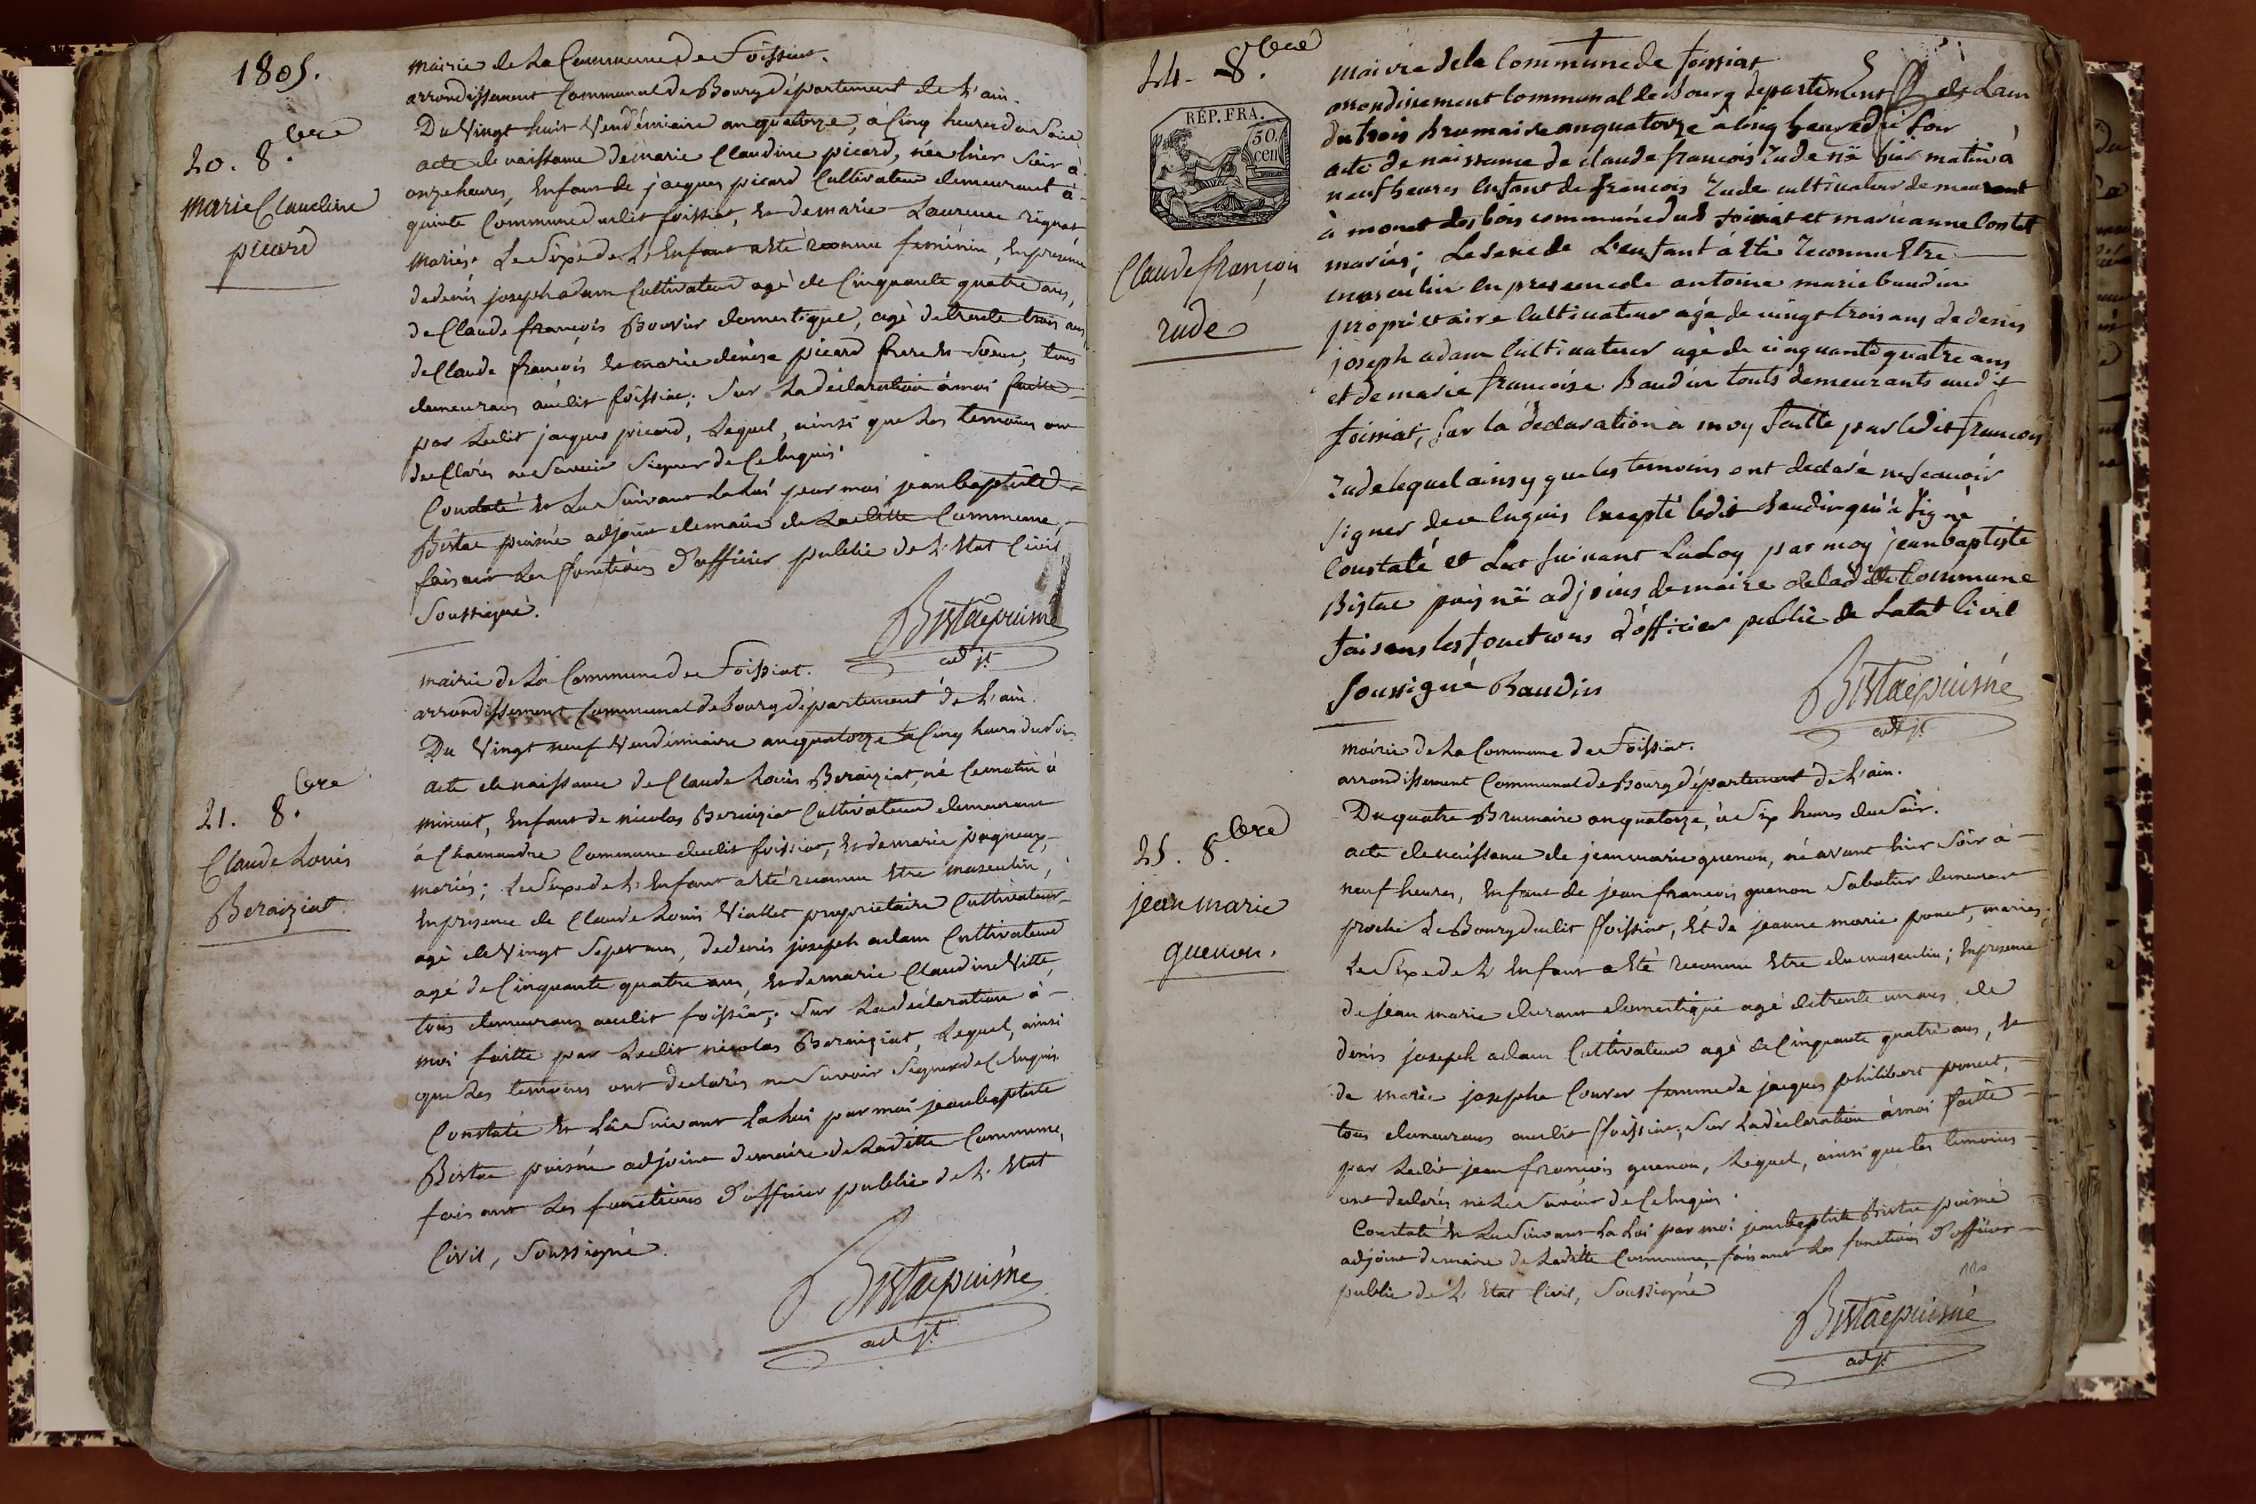 1805.
20. 8.bre
marie Claudine
picard
mairie de La Commune de Foissiat.
arrondissement Communal de Bourg département de L'ain.
Du Vingt huit Vendémiaire an quatorze, à Cinq heures du Soir
acte de naissance de marie Claudine picard, née hier Soir à
onze heures, Enfant de jacques picard Cultivateur demeurant à
quinte Commune dudit foissiat, Et de marie Laurence
mariés. Le Sexe de L'Enfant a Eté reconnu feminin, En présence
de denis joseph adam Cultivateur agé de Cinquante quatre ans,
de Claude françois Bouvier domestique, agé de trente trois ans
de Claude françois Et marie denise picard frere Et Soeur, tous
demeurans audit foissiat; Sur La déclaration à moi faitte
par Ledit jacques picard, Lequel, ainsi que Les temoins ont
declarés ne Savoir Signer de Ce Enquis.
Constaté Et Lu Suivant La Loi par moi jean baptiste
Bistac puiné adjoint de maire de Laditte Commune,
faisant Les fonctions d'officier public de L'Etat Civil
Soussigné.
Bistac puisné
adjt
21. 8.bre
Claude Louis
Beraiziat
mairie de La Commune de Foissiat.
arrondissement Communal de bourg département de L'ain.
Du Vingt neuf Vendémiaire an quatorze à Cinq heures du Soir
acte de naissance de Claude Louis Beraiziat, né Ce matin à
minuit, Enfant de nicolas Beraiziat Cultivateur demeurant
à Chamandre Commune dudit foissiat, Et de marie pagneux,
mariés; Le Sexe de L'Enfant a Eté reconnu Etre masculin,
En présence de Claude Louis Viallet proprietaire Cultivateur
agé de Vingt Sept ans, de denis joseph adam Cultivateur
agé de Cinquante quatre ans, Et de marie Claudine Vitte,
tous demeurans audit foissiat; Sur La déclaration à
moi faitte par Ledit nicolas Beraiziat, Lequel, ainsi
que Les temoins ont declarés ne Savoir Signer de Ce Enquis
Constaté Et Lû Suivant La Loi par moi jean baptiste
Bistac puisné adjoint de maire de Laditte Commune,
faisant Les fonctions d'officier public de L'Etat
Civil, Soussigné.
Bistac puisné
adjt
24. 8.bre
RÉP. FRA.
50.
cen
Claude françois
rude
mairie de la Commune de foissiat
arrondissement Communal de Bourg département de Lain
du trois brumaire an quatorze à cinq heure du soir
acte de naissance de claude françois rude né hier matin à
neuf heures enfant de francois rude cultivateur demeurant
à monet des bois commune dud foissiat et marie anne Contet
mariés; Le sexe de L'enfant à été reconnu Etre
masculin en presence de antoine marie baudin
propriétaire Cultivateur agé de vingt trois ans de denis
joseph adam Cultivateur agé de cinquante quatre ans
et de marie françoise Baudin touts demeurants audit
foissiat, sur la declaration à moy faitte par ledit francois
rude lequel ainsy que les temoins ont declaré ne scavoir
signer de ce enquis Excepté ledit baudin qui a signé
Constaté et Lut suivant La Loy par moy jean baptiste
Bistac puisné adjoins de maire de ladite Commune
faisans les fonctions d'officier public de Letat Civil
soussigné Baudin
Bistac puisné
adjt
25. 8.bre
jean marie
guenon.
mairie de La Commune de Foissiat.
arrondissement Communal de Bourg département de L'ain.
Du quatre Brumaire an quatorze, à Six heures du Soir.
acte de naissance de jean marie guenon, né avant hier Soir à
neuf heures, Enfant de jean francois guenon Sabotier demeurant
proche Le Bourg dudit foissiat, Et de jeanne marie poncet, mariés;
Le Sexe de L'Enfant a Eté reconnu Etre du masculin; En presence
de jean marie durant domestique agé de trente un ans, de
denis joseph adam Cultivateur agé de Cinquante quatre ans, Et
de marie josephe Couver femme de jacques philibert poncet,
tous demeurans audit foissiat; Sur La déclaration à moi faitte
par Ledit jean françois guenon, Lequel, ainsi que les temoins
ont declarés ne Le Savoir de Ce Enquis.
Constaté Et Lu Suivant La Loi par moi jean baptiste Bistac puisné
adjoint de maire de Laditte Commune, faisant Les fonctions d'officier
public de L'Etat Civil, Soussigné
Bistac puisné
adjt